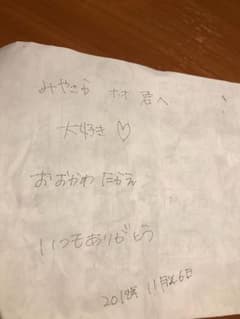 みやこから ホオ 君へ
大好き♡
おおかわ たからえ
いつもありがとう
2018年 11月26日